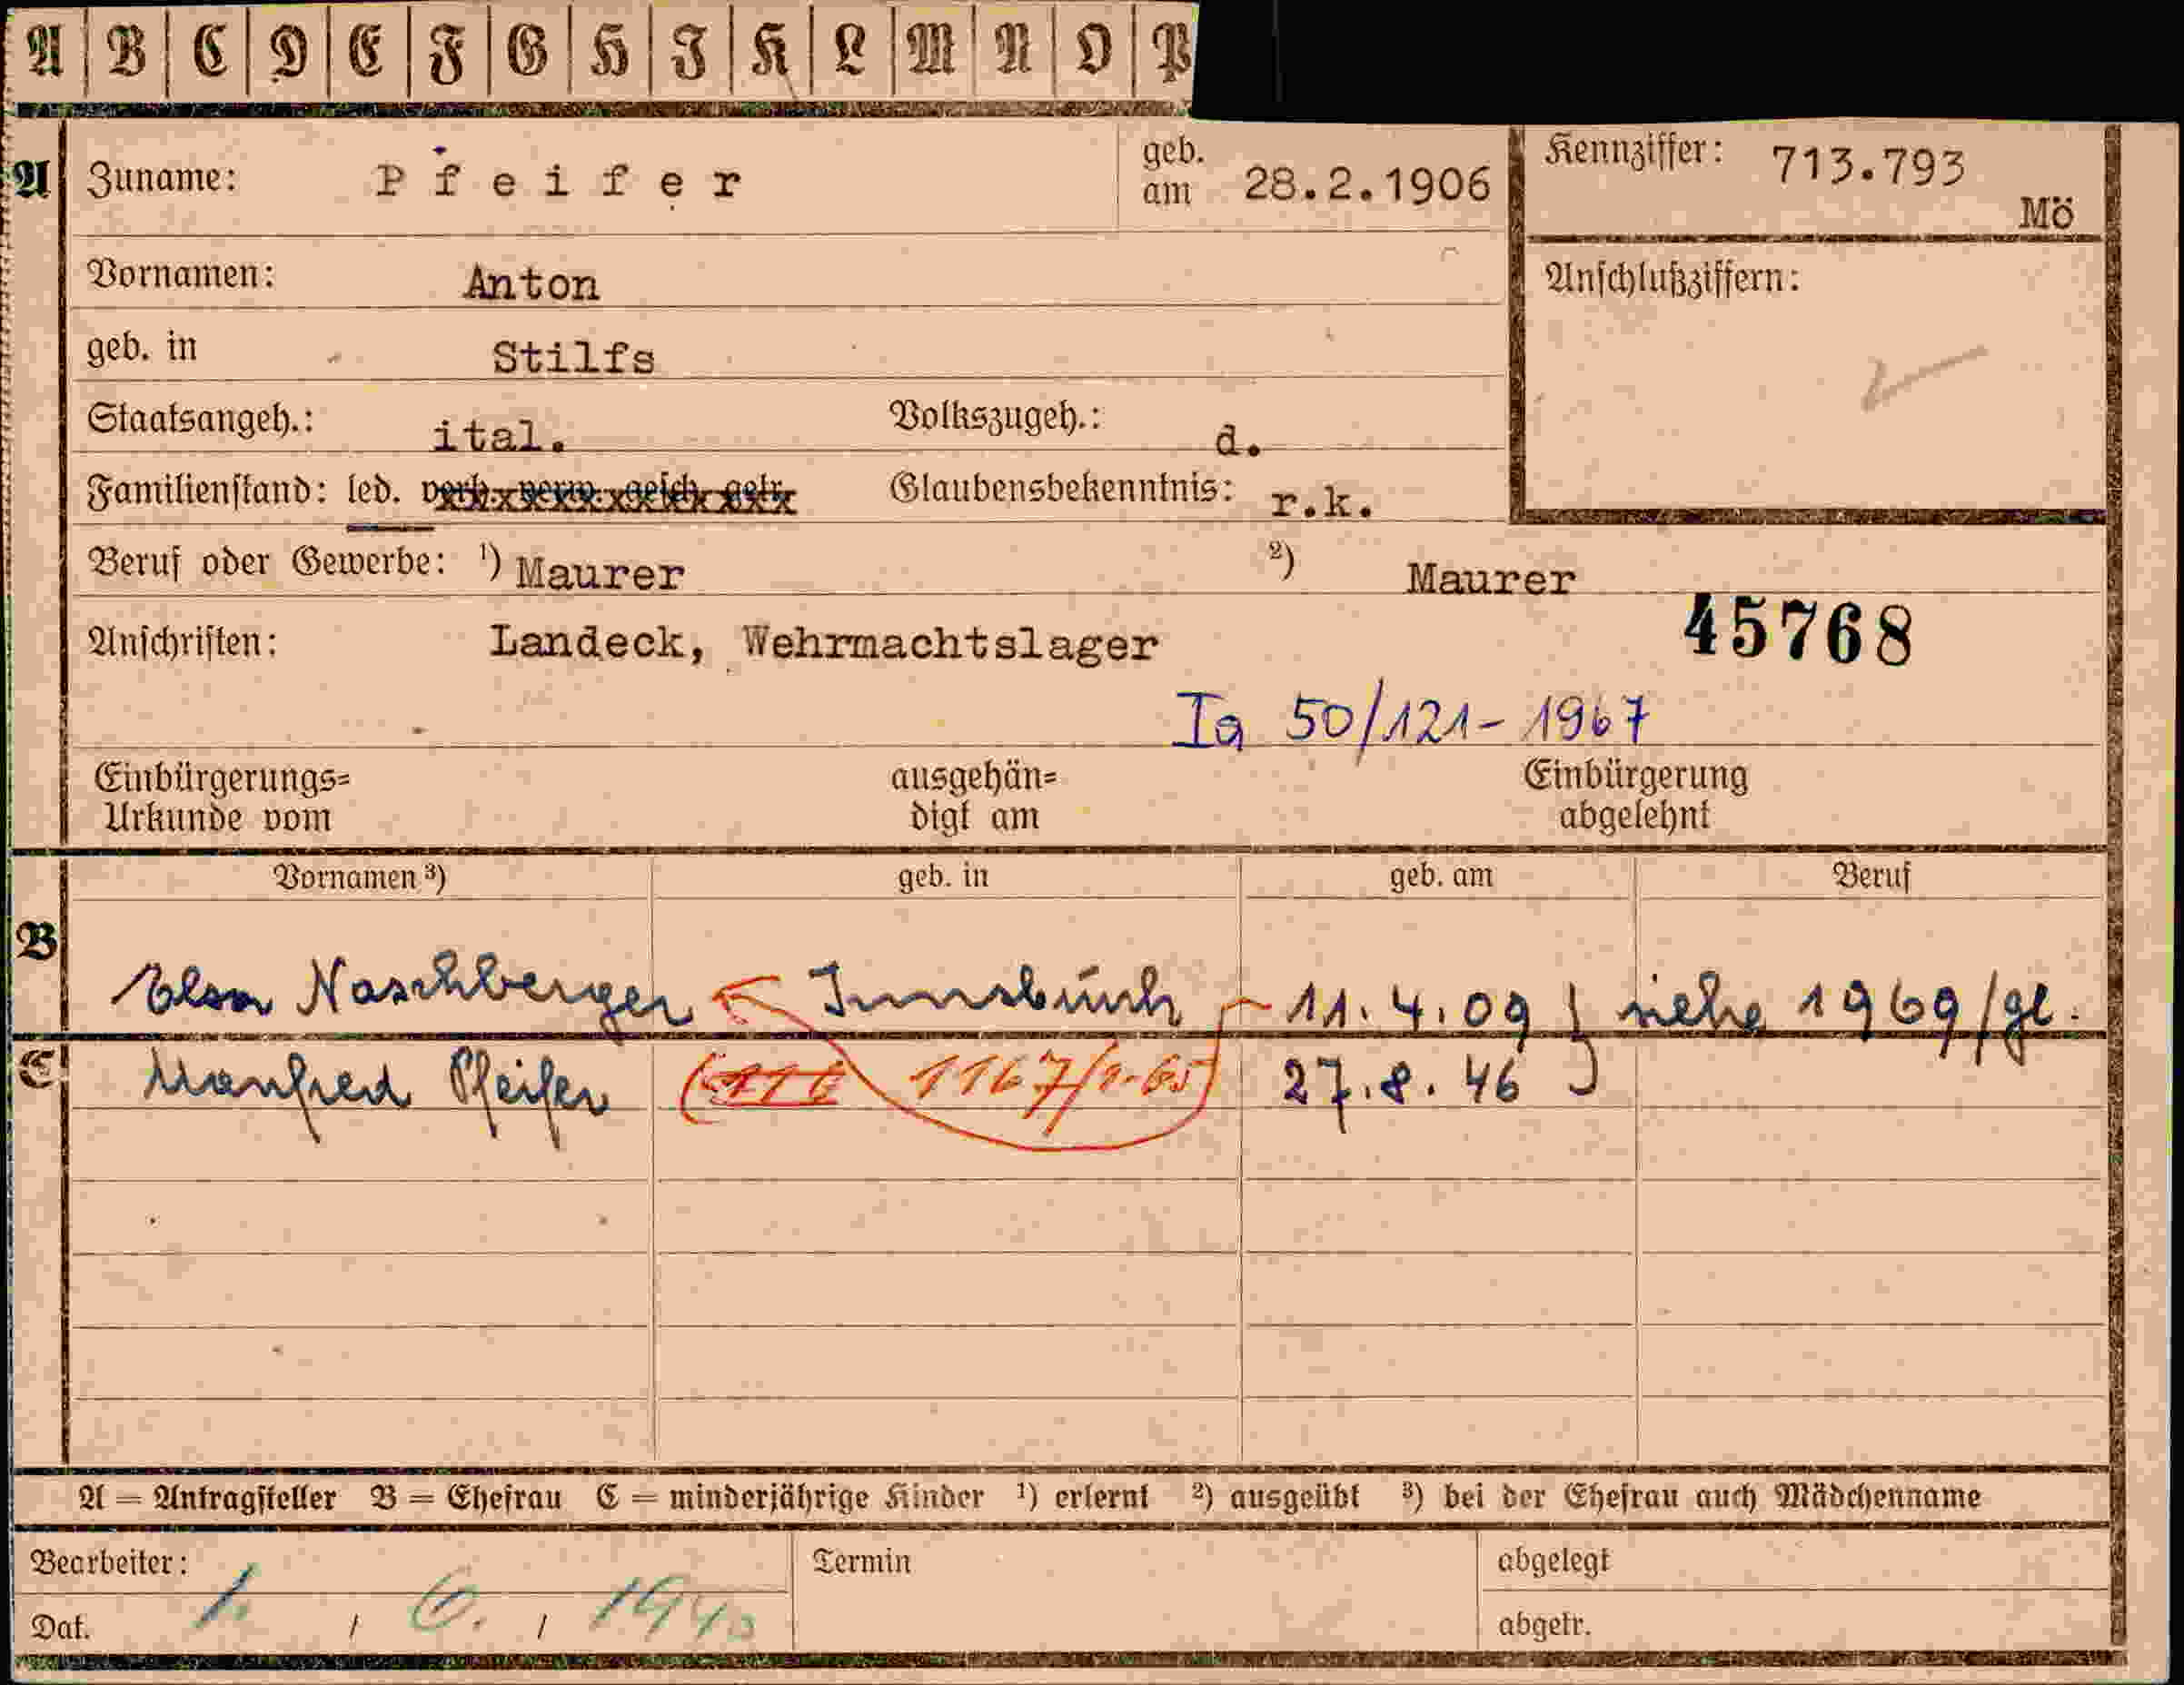 A B C D E F G H J K L M N O P
A Zuname: Pfeifer geb. am 28.2.1906 Kennziffer: 713.793
Mö
Vornamen: Anton Anschlußziffern:
geb. in Stilfs
Staatsangeh.: ital. Volkszugeh.: d.
Familienstand: led. verh. verw. gesch. getr. Glaubensbekenntnis: r.k.
Beruf oder Gewerbe: ¹) Maurer ²) Maurer
Anschriften: Landeck, Wehrmachtslager 45768
Ia 50/121-1967
Einbürgerungs= ausgehän= Einbürgerung
Urkunde vom digt am abgelehnt
Vornamen ³) geb. in geb. am Beruf
B
Elsa Naschberger Innsbruck 11.4.09 siehe 1969/gl.
C Manfred Pfeifer (116 1167/1-65) 27.8.46
A = Antragsteller B = Ehefrau C = minderjährige Kinder ¹) erlernt ²) ausgeübt ³) bei der Ehefrau auch Mädchenname
Bearbeiter: Termin abgelegt
Dat. 1. / 6. / 1940 abgetr.